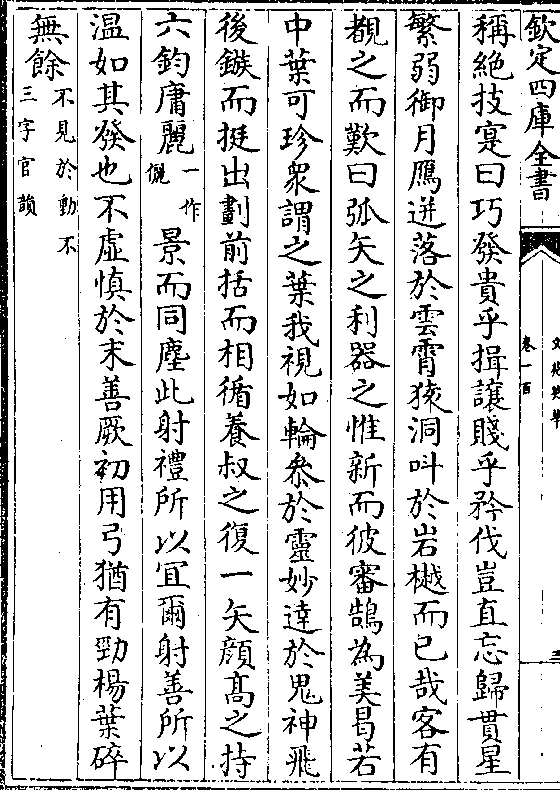 欽定四庫全書
卷一百
稱絶技寔曰巧發貴乎揖讓賤乎矜伐豈直忘歸貫星
繁弱御月鴈迸落於雲霄猿洞叫於岩樾而已哉客有
覩之而歎曰弧矢之利器之惟新而彼審鵠為美曷若
中葉可珍衆謂之葉我視如輪叅於靈妙達於鬼神飛
後鏃而挺出劃前括而相循養叔之復一矢顔髙之持
六鈞庸麗一作儷景而同塵此射禮所以宜爾射善所以
温如其發也不虚慎於末善厥初用弓猶有勁楊葉碎
無餘不見於動不三字官韻